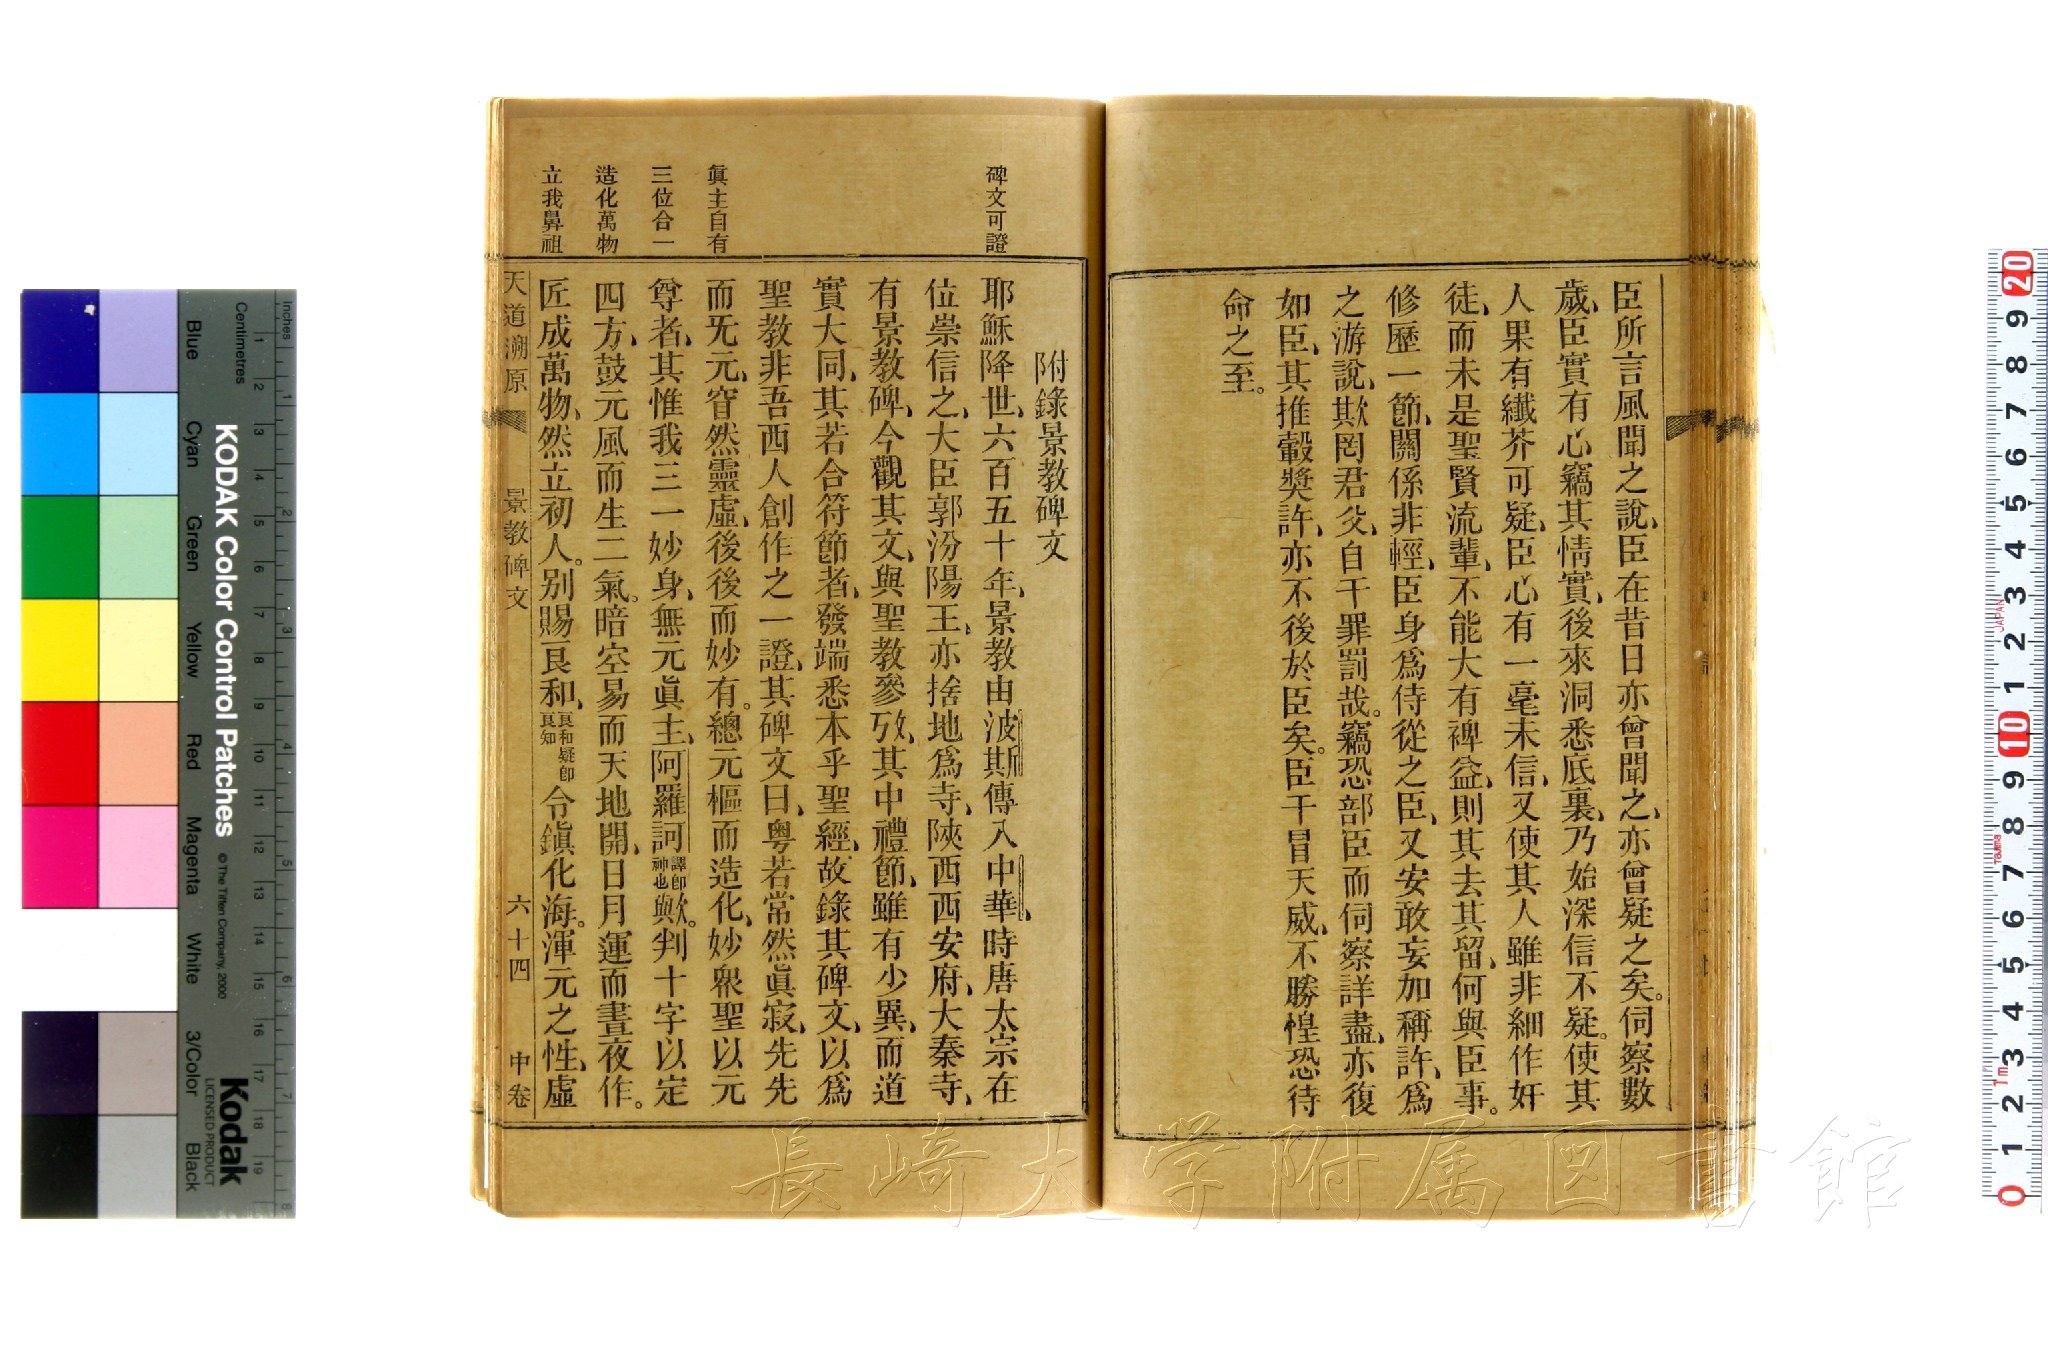 臣所言風聞之說、臣在昔日亦曾聞之、亦曾疑之矣。伺察數
歲、臣實有心竊其情實、後來洞悉底裏、乃始深信不疑。使其
人果有纖芥可疑、臣心有一毫未信、又使其人雖非細作奸
徒、而未是聖賢流輩、不能大有裨益、則其去其留、何與臣事。
修歷一節、關係非輕、臣身爲侍從之臣、又安敢妄加稱許、爲
之游說、欺罔君父、自干罪罰哉。竊恐部臣而伺察詳盡、亦復
如臣、其推轂獎許、亦不後於臣矣。臣干冒天威、不勝惶恐待
命之至。
附錄景教碑文
碑文可證
耶穌降世、六百五十年、景教由波斯傳入中華、時唐太宗在
位崇信之、大臣郭汾陽王、亦捨地爲寺、陝西西安府、大秦寺、
有景教碑、今觀其文、與聖教參攷、其中禮節、雖有少異、而道
實大同、其若合符節者、發端悉本乎聖經、故錄其碑文、以爲
聖教非吾西人創作之一證、其碑文曰、粤若常然眞寂、先先
眞主自有
而旡元、窅然靈虛、後後而妙有。總元樞而造化、妙衆聖以元
三位合一
尊者、其惟我三一妙身、無元眞主、阿羅訶譯卽神也歟。判十字以定
造化萬物
四方、鼓元風而生二氣。暗空易而天地開、日月運而晝夜作。
立我鼻祖
匠成萬物、然立初人。別賜良和、良和疑卽良知令鎭化海。渾元之性、虛
天道溯原 景教碑文 六十四 中卷
長崎大学附属図書館
KODAK Color Control Patches
©The Tiffen Company, 2000
Kodak
LICENSED PRODUCT
Inches
Centimetres
Blue
Cyan
Green
Yellow
Red
Magenta
White
3/Color
Black
1 2 3 4 5 6 7 8 9 10 11 12 13 14 15 16 17 18 19
1 2 3 4 5 6 7 8
20 9 8 7 6 5 4 3 2 1 10 9 8 7 6 5 4 3 2 1 0
JAPAN